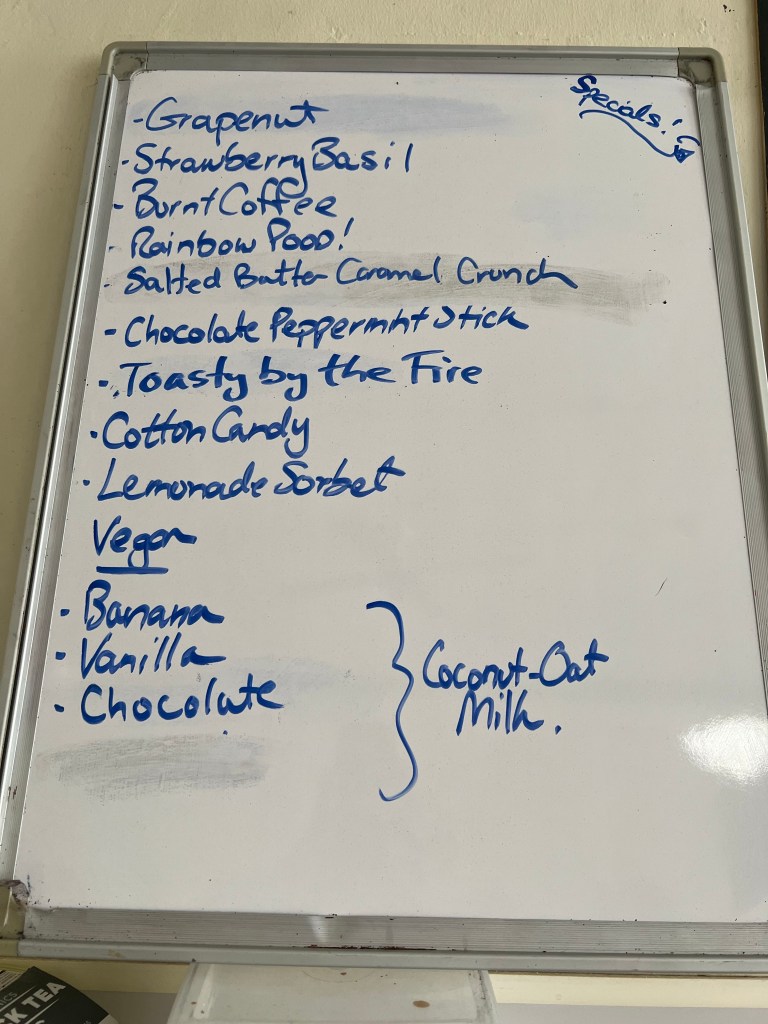 Specials!
- Grapenut
- Strawberry Basil
- Burnt Coffee
- Rainbow Poop!
- Salted Butter Caramel Crunch
- Chocolate Peppermint Stick
- Toasty by the Fire
- Cotton Candy
- Lemonade Sorbet
Vegan
- Banana
- Vanilla
- Chocolate
Coconut-Oat
Milk.
K TEA